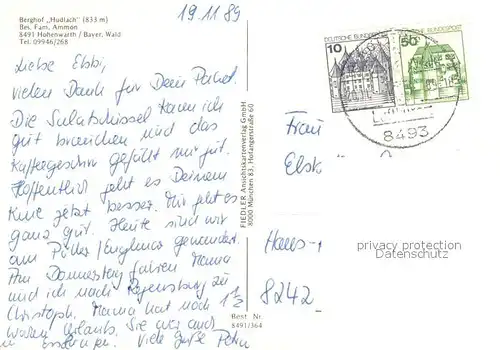 Berghof „Hudlach" (833 m)
Bes. Fam. Ammon
8491 Hohenwarth / Bayer. Wald
Tel. 09946/268
19.11.89
Liebe Elsbi,
vielen Dank für Dein Paket.
Die Salatschüssel kann ich
gut brauchen und das
Kaffeegeschirr gefällt mir gut.
Hoffentlich geht es Deinem
Knie jetzt besser. Mir geht es
ganz gut. Heute sind wir
am Pröller / Englmar gewandert.
Am Donnerstag fahren Mama
und ich nach Regensburg zu
Christoph. Mama hat noch 1½
Wochen Urlaub. Sie war auch
Viele Grüße Petra
FIEDLER Ansichtskartenverlag GmbH
8000 München 83, Hofangerstraße 60
Best. Nr.
8491/364
10
DEUTSCHE BUNDESPOST
50
8493
Frau
Elsb
Haus-
8242
privacy protection
Datenschutz